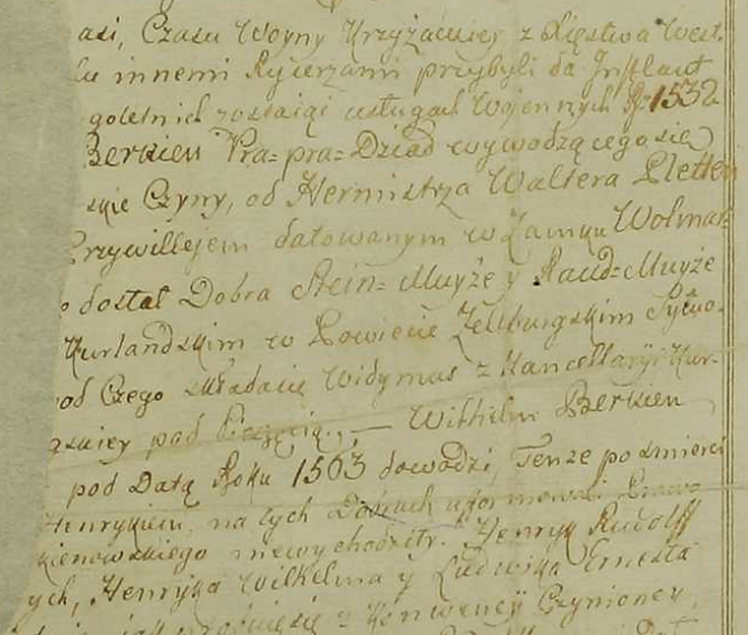 asi, Czasu Woyny Krzyżackiey z Xięstwa West.
lu innemi Rycerzami przybyli do Inflant
goletnich zostaiąc usługach Wojennych R. 1532
Berkien Pra=pra=Dziad wywodzącego się
skie Czyny, od Hermistrza Waltera Pletten
Przywillejem datowanym w Zamku Wolmar
o dostał Dobra Stein=Muyże y Raud=Muyże
Kurlandskim w Powiecie Zelburgskim Sytuo.
od Czego składaiąc Widymus z Kancellaryi Kur-
gskiey pod Pieczęcią.,— Wilhelm Berkien
pod Datą Roku 1563 dowodzi, Tenże po smierci
Henrykiem, na tych Dobrach uformowali Prawo
kienowskiego niewychodziły. Henryk Rudolff
ych, Henryka Wilhelma y Ludwika Ernesta
Konwency Czynioney